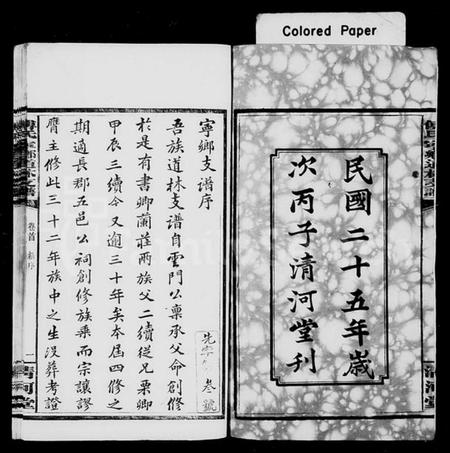 Colored Paper
民國二十五年歲
次丙子清河堂刊
清河堂
寧鄉支譜序
吾族道林支譜自雲門公稟承父命創修
於是有書卿蘭莊兩族父二續從兄栗卿
甲辰三續今又逾三十年矣本屆四修之
期適長郡五邑公祠創修族乘而宗讓謬
膺主修此三十二年族中之生沒葬考證
卷首
序
一
清河堂